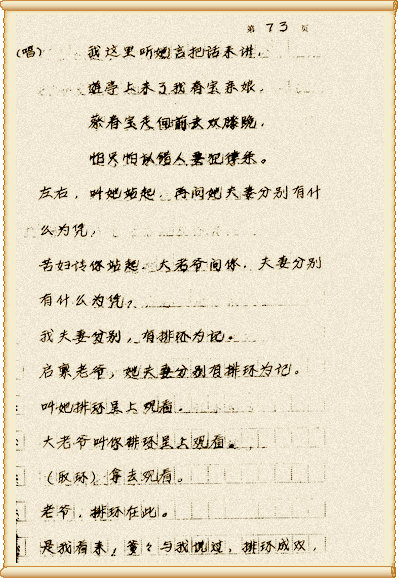 第 73 页
(唱) 我这里听她言把话来讲,
遊亭上来了我春宝亲娘,
蔡春宝走向前去双膝跪,
怕只怕认错人要犯律条。
左右,叫她站起,再问她夫妻分别有什
么为凭,
苦妇请你站起,大老爷问你,夫妻分别
有什么为凭,
我夫妻分别,有排环为记。
启禀老爷,她夫妻分别有排环为记。
叫她排环呈上观看。
大老爷叫你排环呈上观看。
(取环)拿去观看。
老爷,排环在此。
是我看来,爹々与我说过,排环成双,